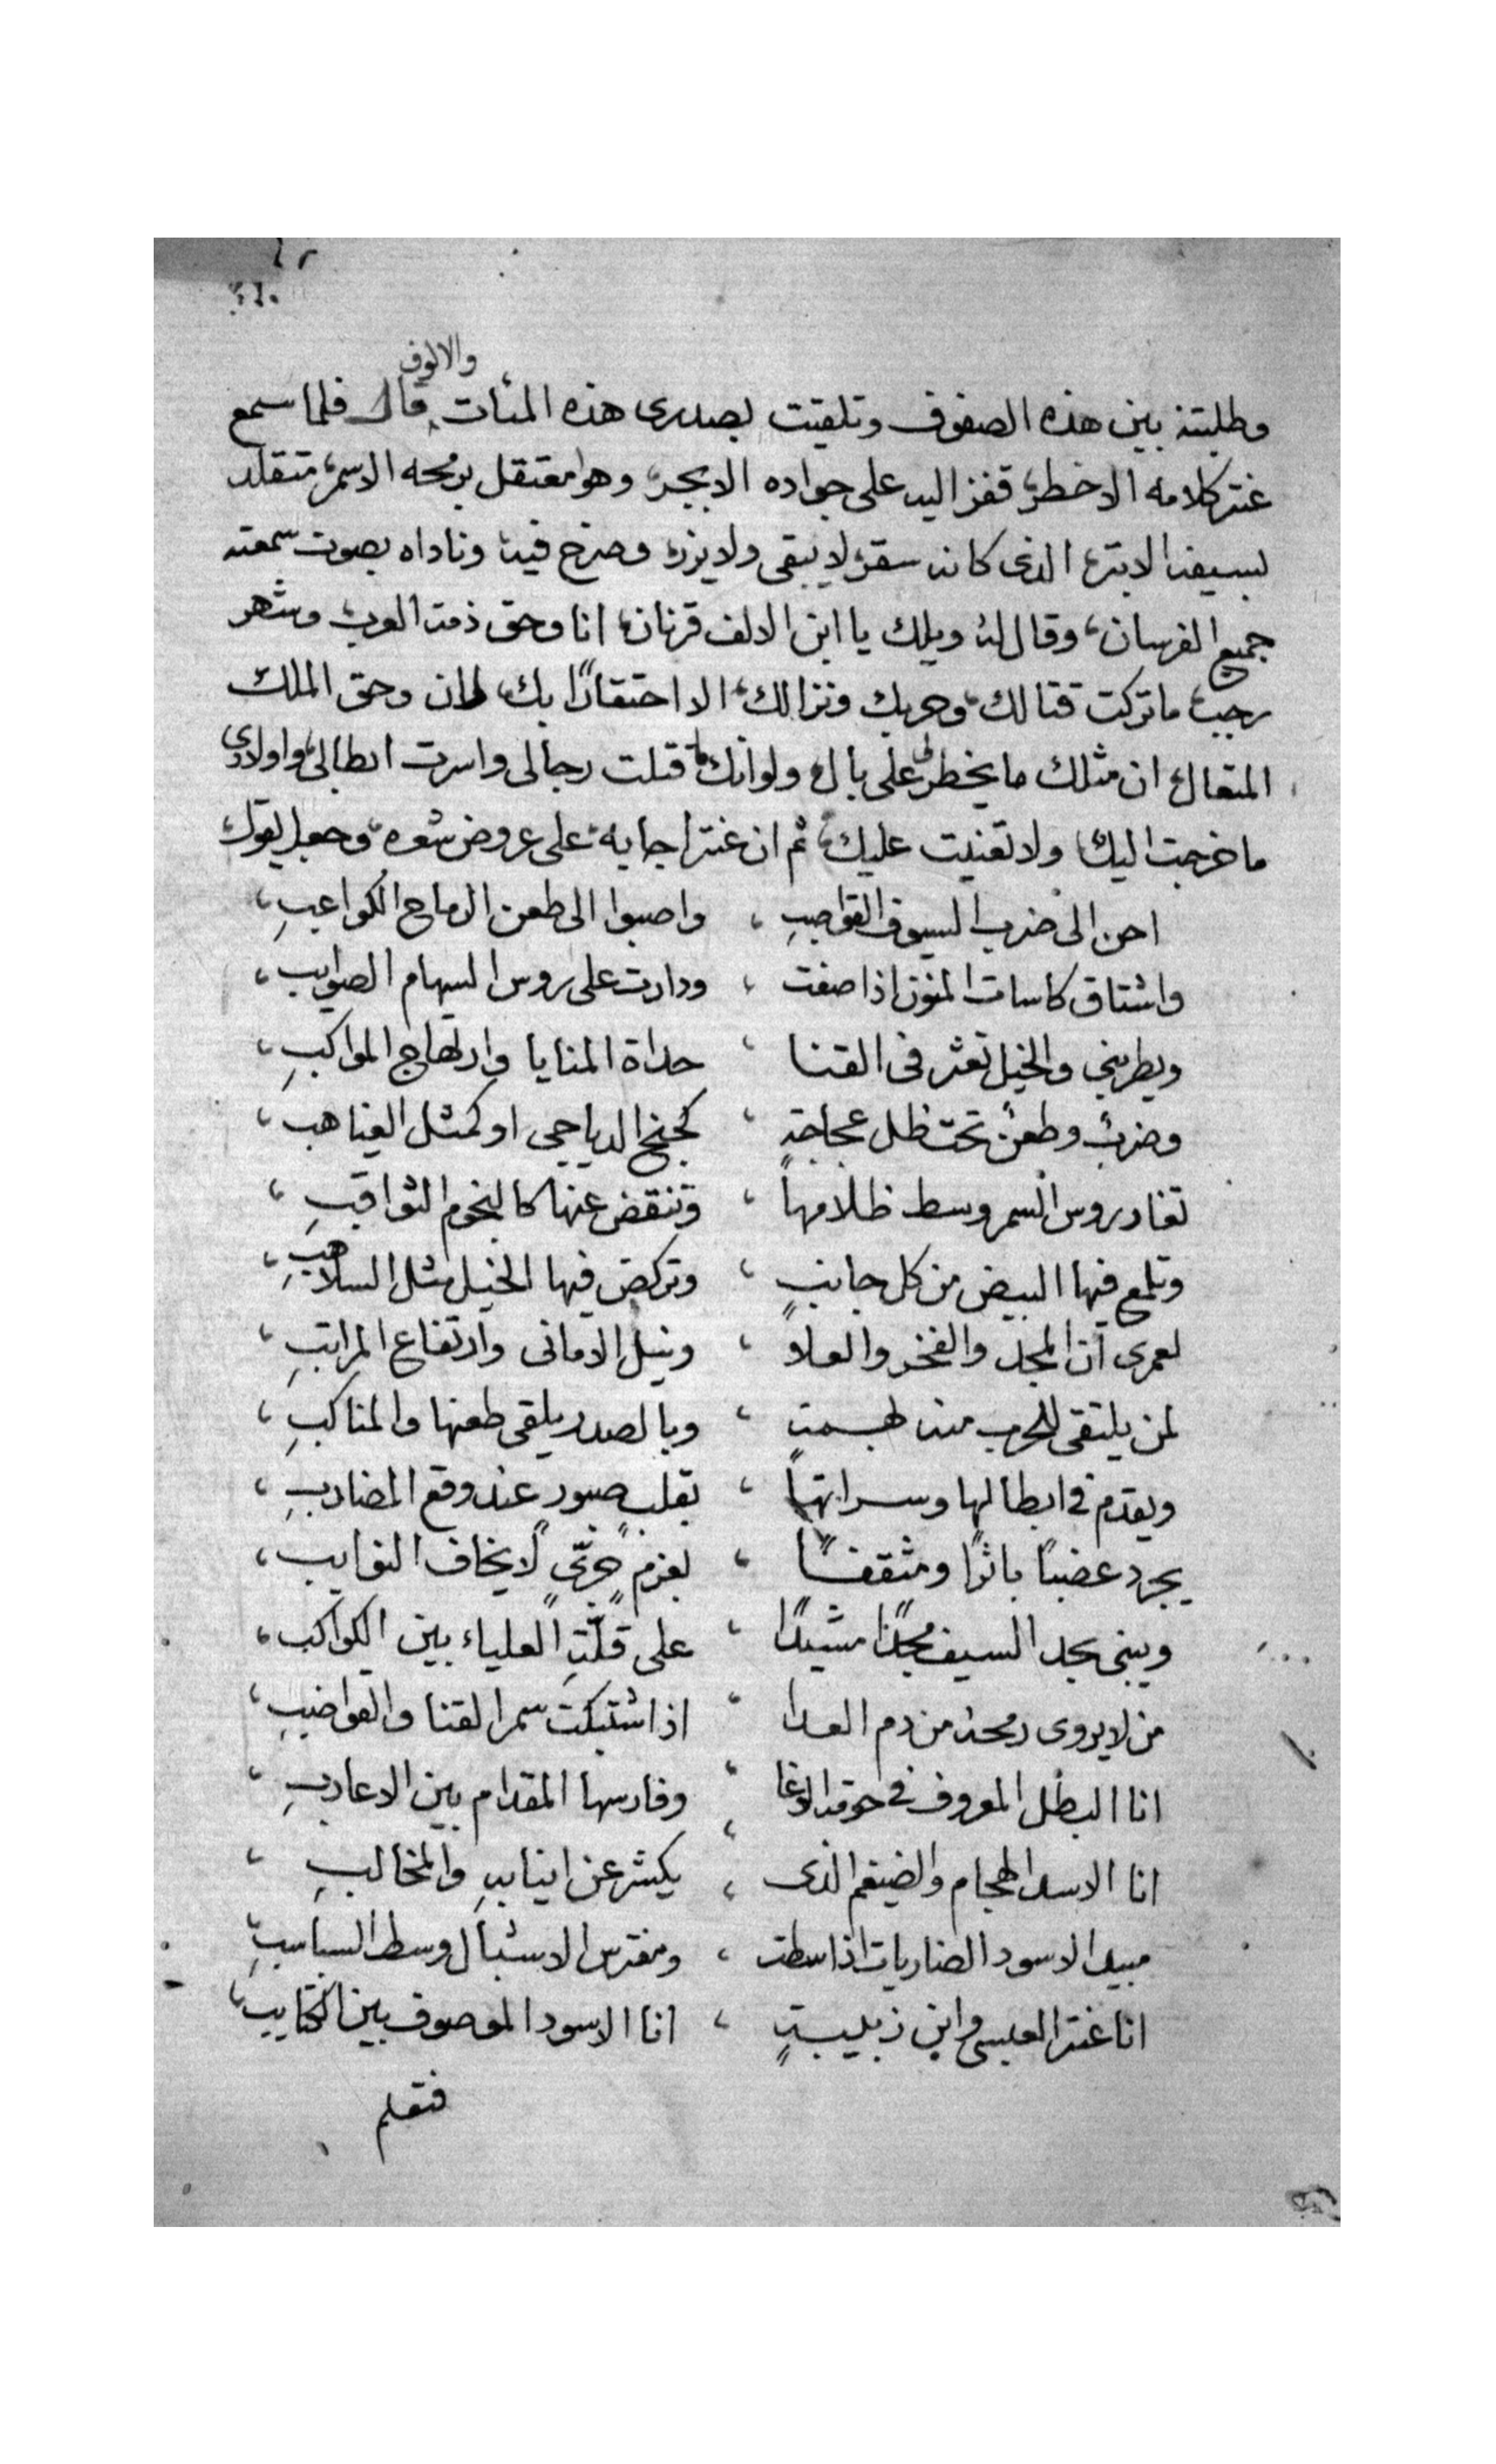 والالوف
وطلبته بين هذه الصفوف وتلقيت بصدرى هذه المئات قال فلما سمع
عنتر كلامه الاخطر، قفز اليه على جواده الابجر، وهو معتقل برمحه الاسمر، متقلد
بسيفه الابتر، الذى كانه سقر، لا يبقى ولا يزر، وصرخ فيه وناداه بصوت سمعته
جميع الفرسان، وقال له ويلك يا ابن الالف قرنان، انا وحق ذمة العرب وشهر
رجب، ما تركت قتالك، وحربك ونزالك، الا احتقارًا بك، لان وحق الملك
المتعال، ان مثلك ما يخطر لى على بال، ولو انك ما قتلت رجالى واسرت ابطالى، واولادى
ما خرجت اليك، ولا تعنيت عليك، ثم ان عنتر اجابه، على عروض شعره، وجعل يقول،
احن الى ضرب السيوف القواضبِ ، واصبوا الى طعن الرماح الكواعبِ،
واشتاق كاسات المنون اذا صفت ، ودارت على روس السهام الصوايب،
ويطربني والخيل تعثر فى القنا ، حداة المنايا وارتهاج المواكبِ،
وضربٌ وطعنٌ تحت ظل عجاجةٍ ، كجنح الدياجي او كمثل الغياهب،
تغادر روس السمر وسط ظلامها ، وتنقض عنها كالنجوم الثواقبِ،
وتلمع فيها البيض من كل جانبٍ ، وتركض فيها الخيل مثل السلاهبِ،
لعمرى ان المجد والفخر والعلا ، ونيل الامانى وارتفاع المراتبِ،
لمن يلتقى للحرب منه بهمةٍ ، وبالصدر يلقى طعنها والمناكبِ،
ويقدم فى ابطالها وسراتها ، بقلب صبورٍ عند وقع المضاربِ،
يجرد عضبًا باترًا ومثقفًا ، بعزم جرىٍّ لا يخاف النوايب،
ويبنى بحد السيف مجدًا مشيدًا ، على قلّةِ العلياء بين الكواكب،
من لا يروى رمحه من دم العدا ، اذا اشتبكت سمر القنا والقواضبِ،
انا البطل المعروف فى حومة الوغا ، وفارسها المقدام بين الاعاربِ،
انا الاسد الهجام والضيغم الذى ، يكشر عن انيابهِ والمخالبِ ،
مبيد الاسود الضاريات اذا سطت ، ومفترس الاشبال وسط السباسبِ،
انا عنتر العبسى وابن زبيبةٍ ، انا الاسود الموصوف بين الكتايب،
فتعلم